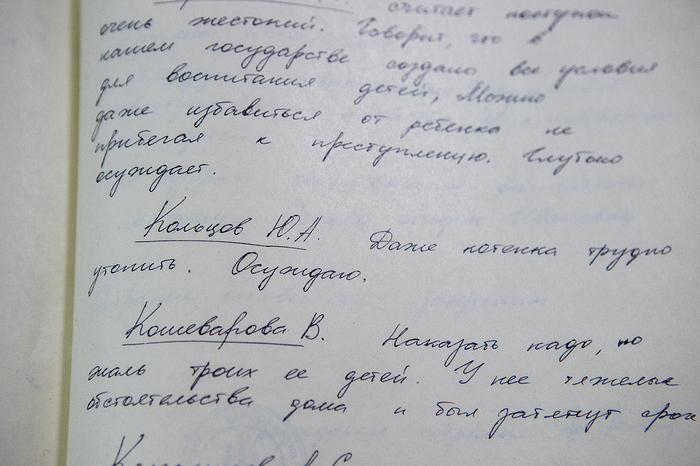 считает поступок
очень жестокий. Говорит, что в
нашем государстве созданы все условия
для воспитания детей, Можно
даже избавиться от ребенка не
прибегая к преступлению. Глубоко
осуждает.
Кольцов Ю.А. Даже котенка трудно
утопить. Осуждаю.
Кошеварова В. Наказать надо, но
жаль троих ее детей. У нее тяжелые
обстоятельства дома и был затянут срок